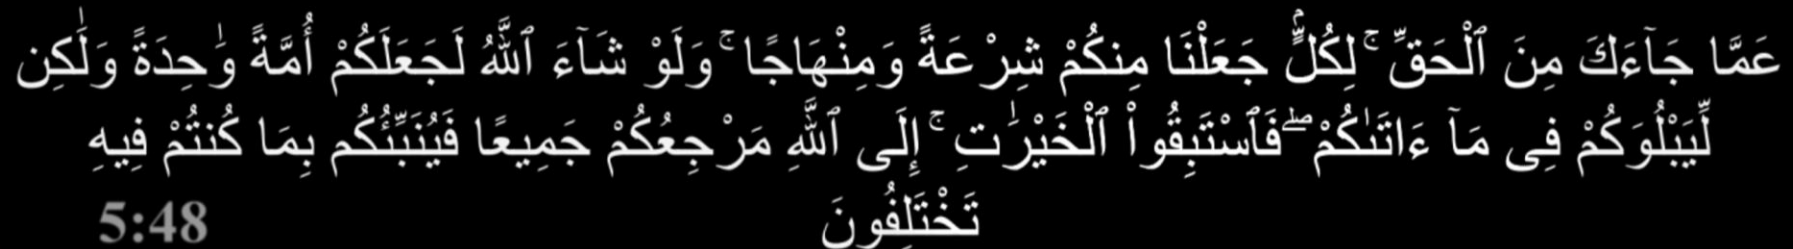 عَمَّا جَآءَكَ مِنَ ٱلْحَقِّ ۚ لِكُلٍّۢ جَعَلْنَا مِنكُمْ شِرْعَةً وَمِنْهَاجًا ۚ وَلَوْ شَآءَ ٱللَّهُ لَجَعَلَكُمْ أُمَّةً وَٰحِدَةً وَلَٰكِن
لِّيَبْلُوَكُمْ فِى مَآ ءَاتَىٰكُمْ ۖ فَٱسْتَبِقُوا۟ ٱلْخَيْرَٰتِ ۚ إِلَى ٱللَّهِ مَرْجِعُكُمْ جَمِيعًا فَيُنَبِّئُكُم بِمَا كُنتُمْ فِيهِ
تَخْتَلِفُونَ
5:48